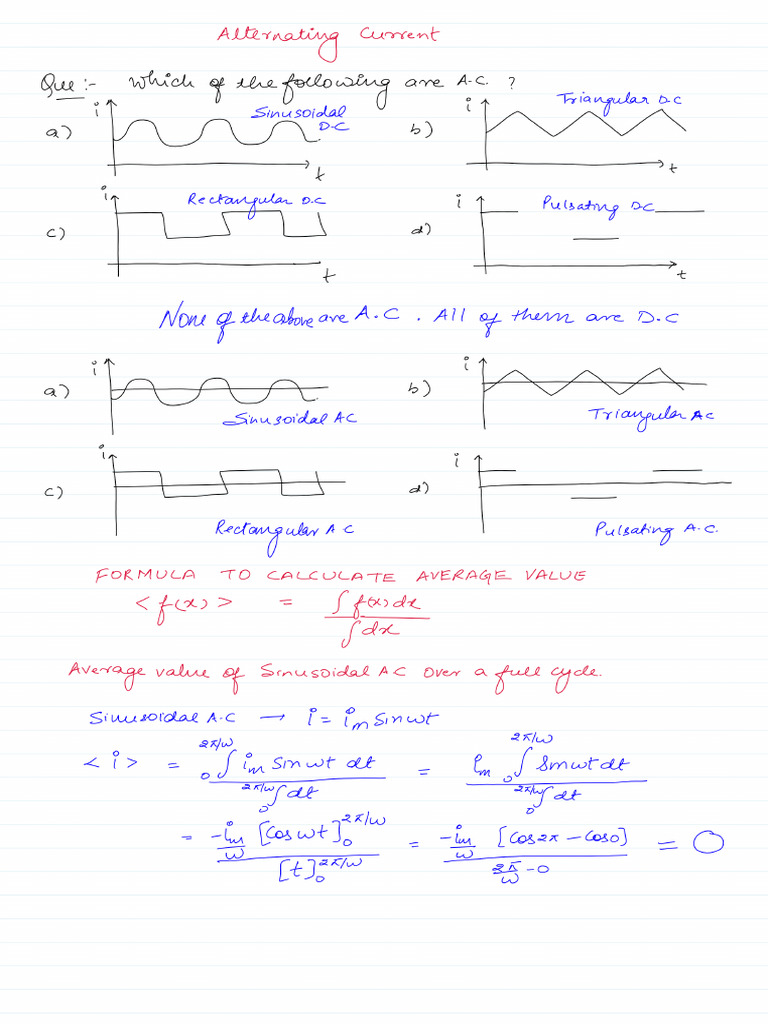 Alternating Current
Que :- Which of the following are A.C. ?
a) i Sinusoidal D.C t
b) i Triangular D.C t
c) i Rectangular D.C t
d) i Pulsating D.C t
None of the above are A.C . All of them are D.C
a) i Sinusoidal AC
b) i Triangular AC
c) i Rectangular A.C
d) i Pulsating A.C.
FORMULA TO CALCULATE AVERAGE VALUE
< f(x) > = ∫ f(x) dx / ∫ dx
Average value of Sinusoidal AC over a full cycle.
Sinusoidal A.C → i = i_m Sin wt
< i > = ₀∫^{2π/w} i_m Sin wt dt / ₀∫^{2π/w} dt = i_m ₀∫^{2π/w} Sin wt dt / ₀∫^{2π/w} dt
= -i_m/w [Cos wt]₀^{2π/w} / [t]₀^{2π/w} = -i_m/w [Cos 2π - Cos 0] / 2π/w - 0 = 0